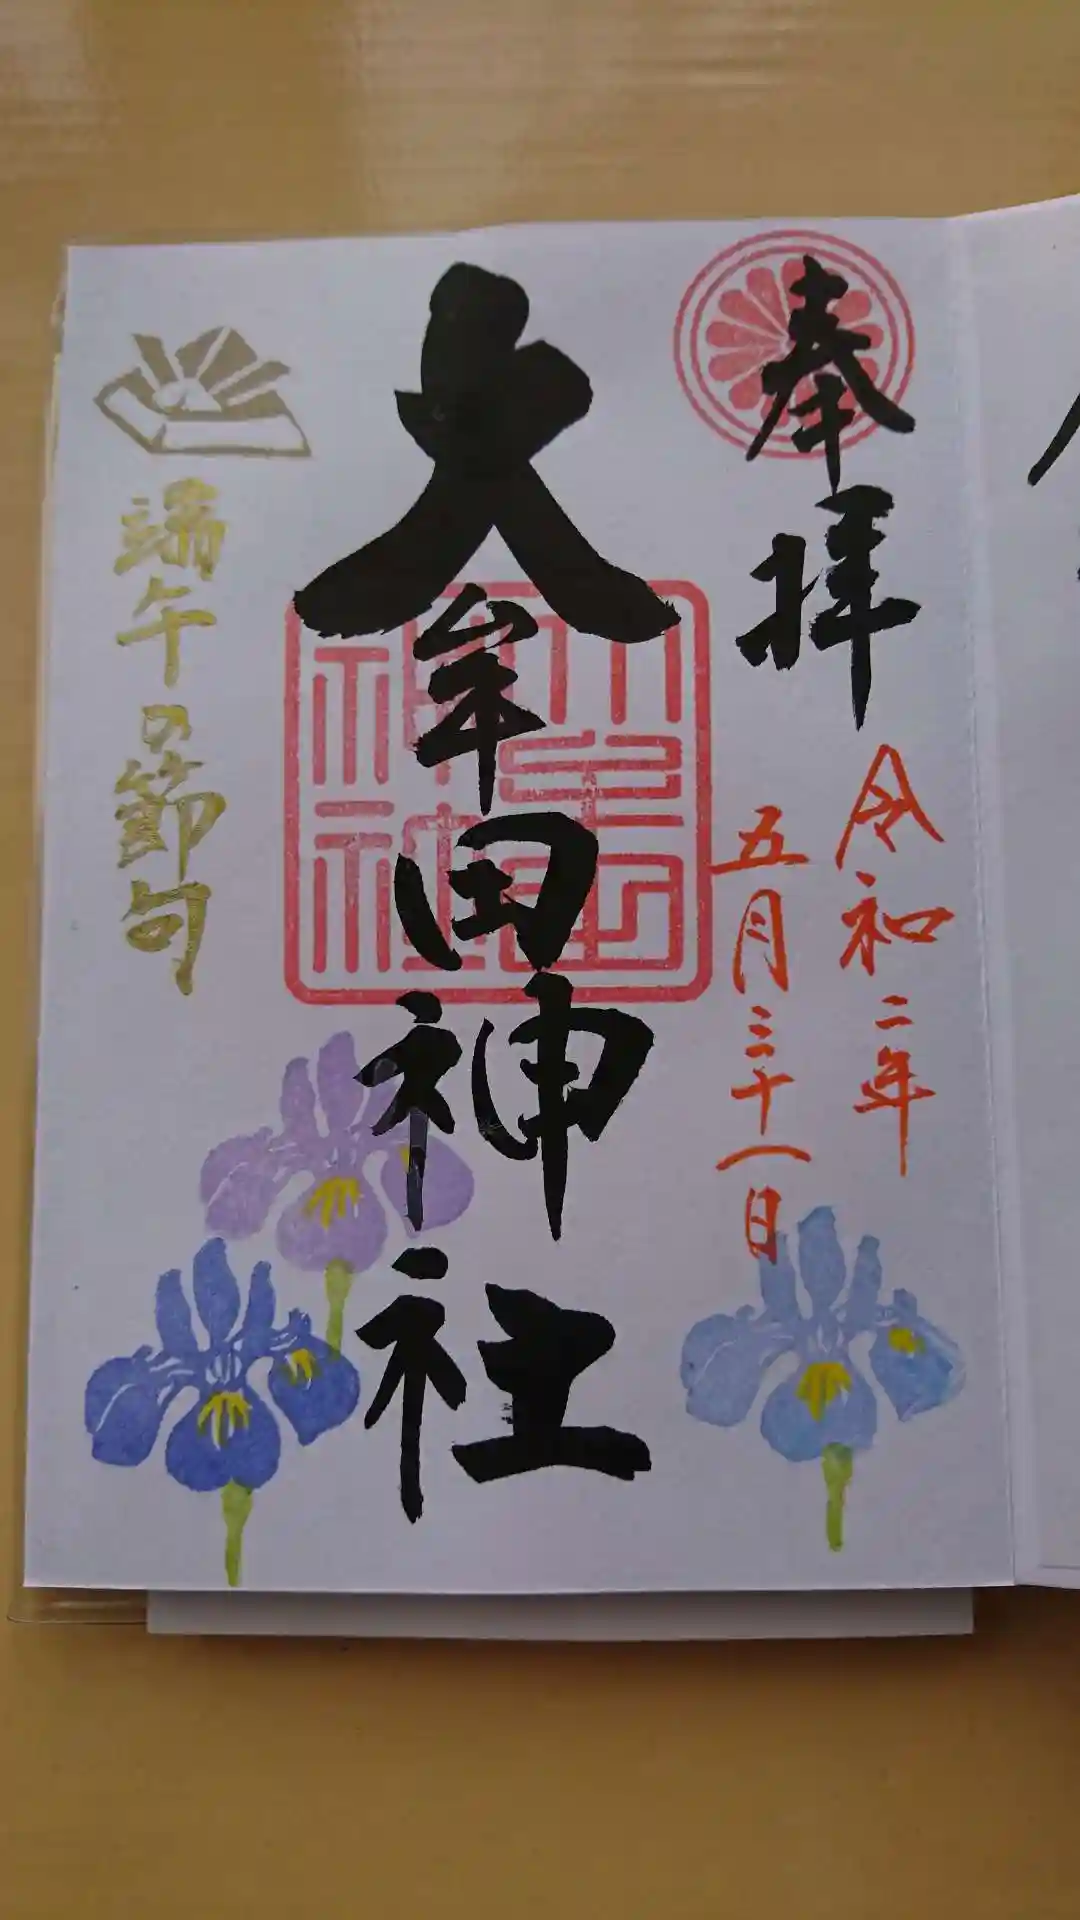 奉拝
令和二年
五月三十一日
大牟田神社
端午の節句